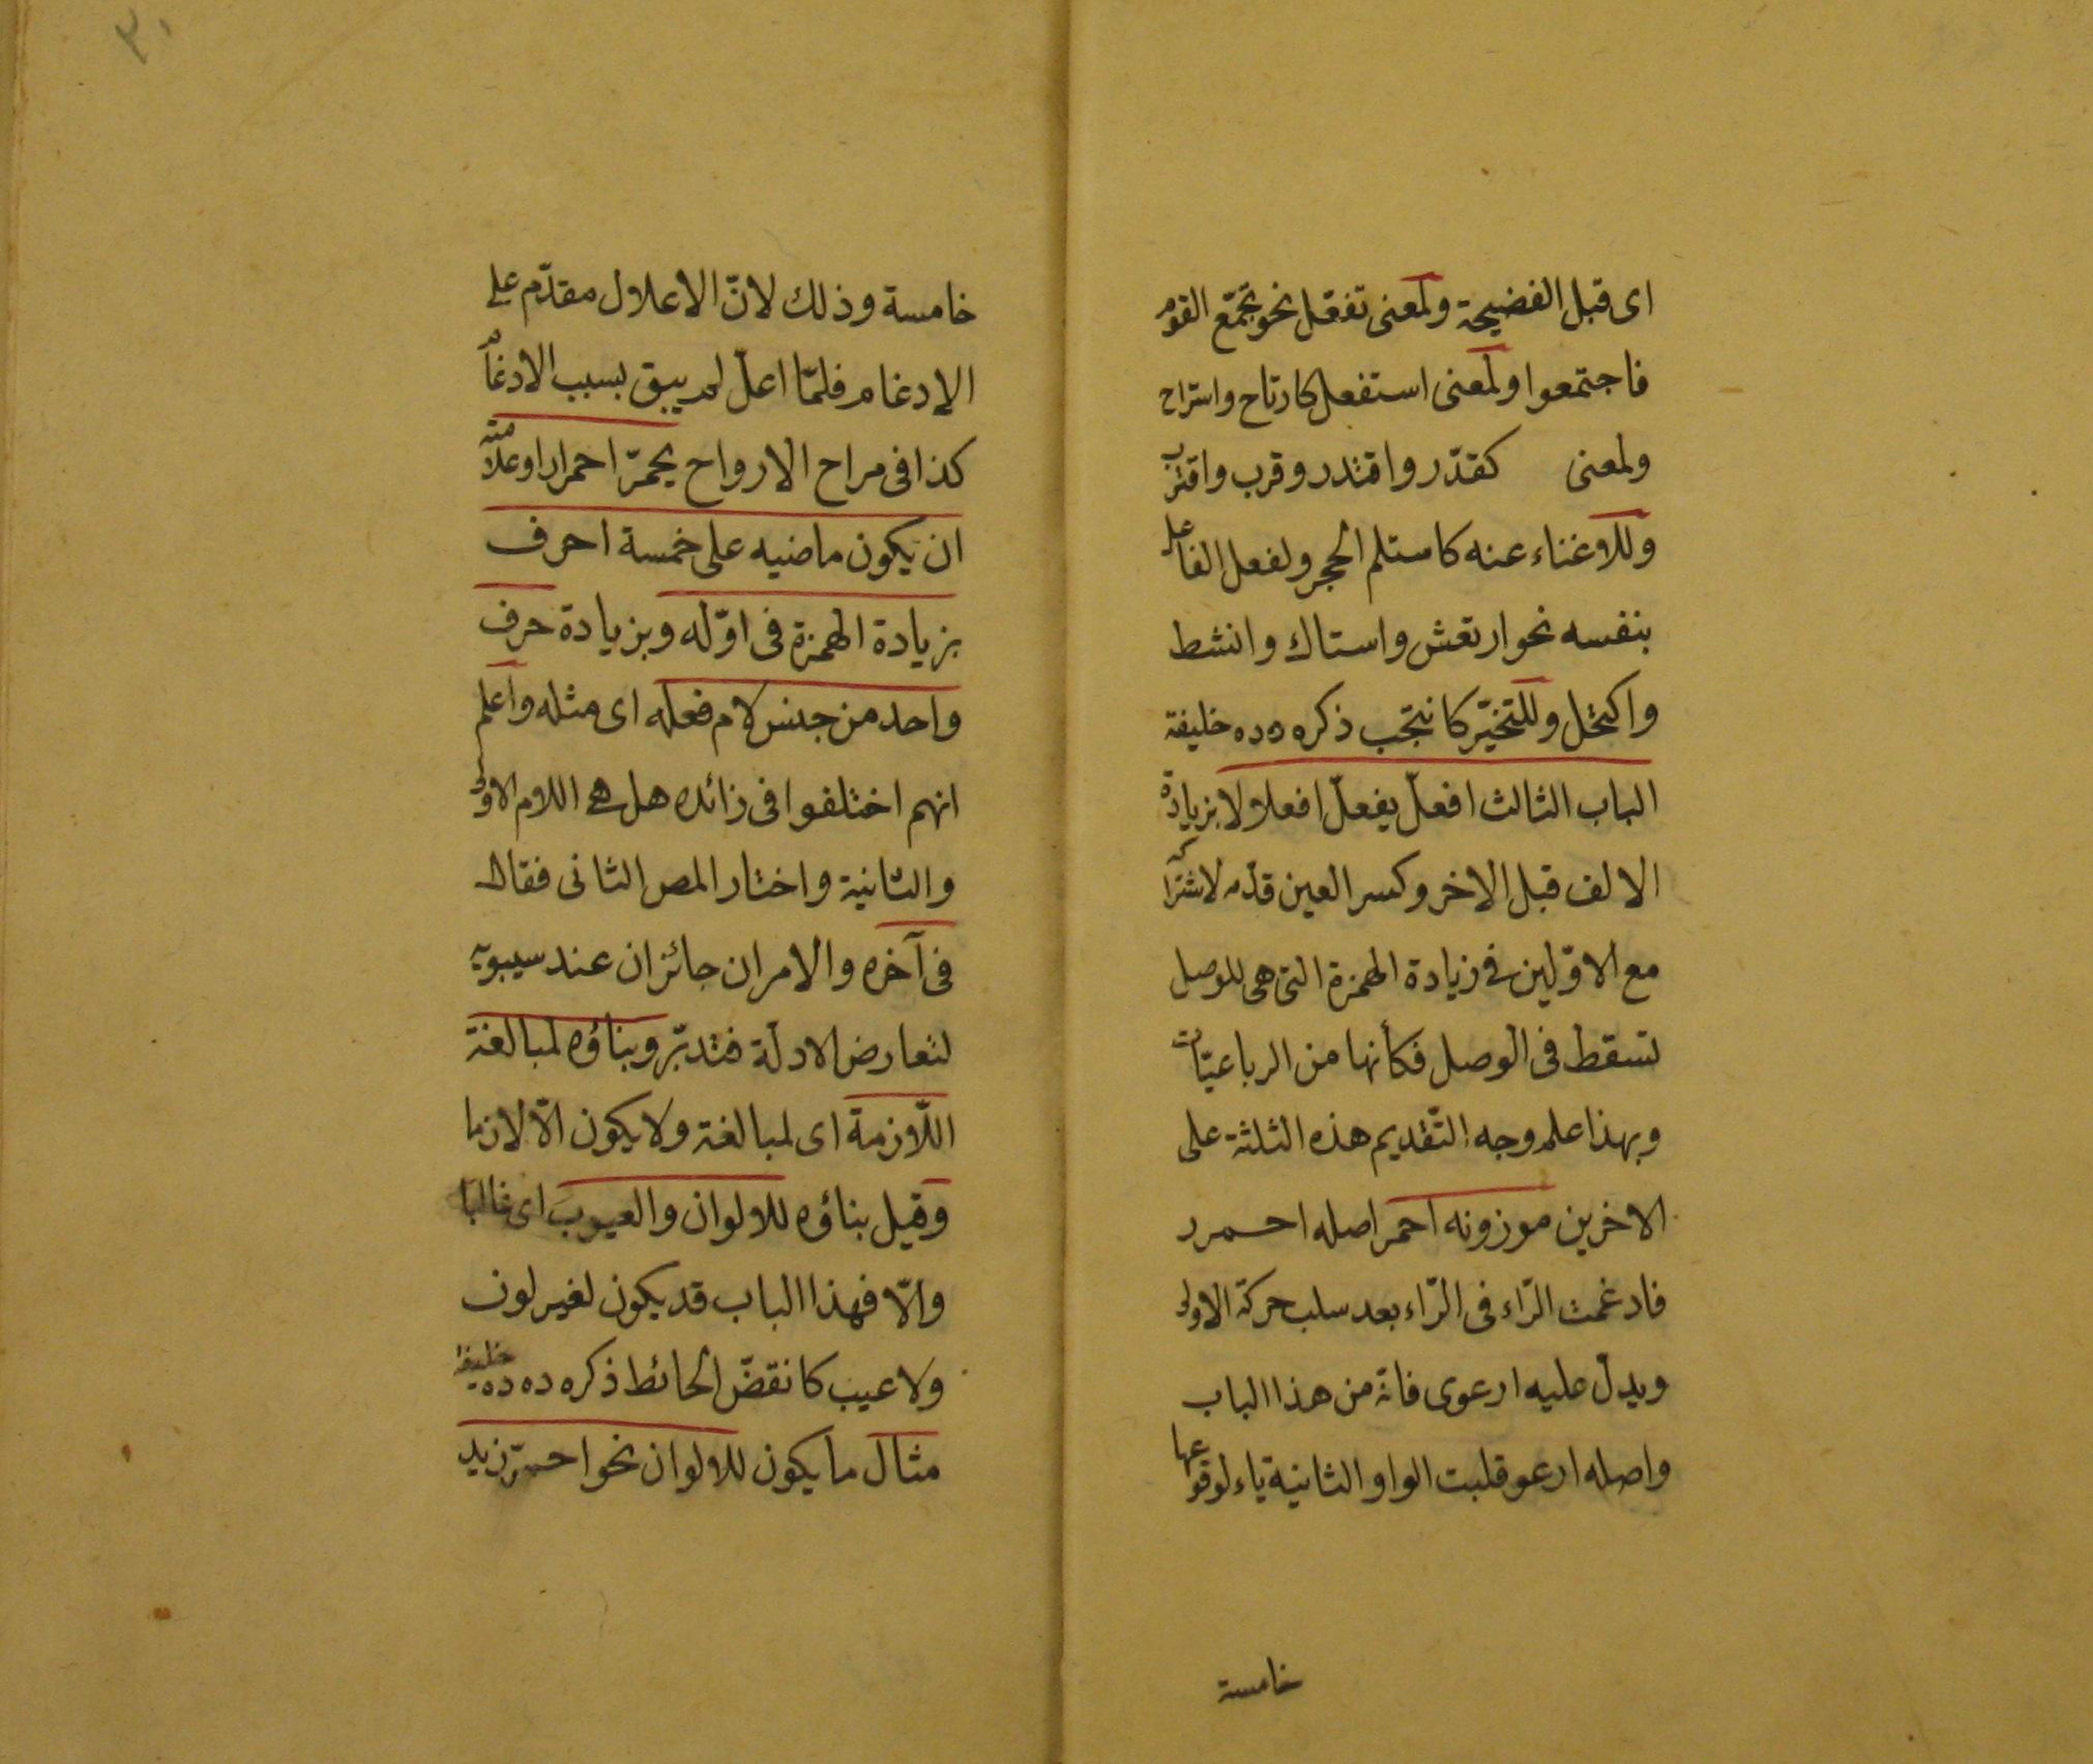 اى قبل الفضيحة ولمعنى تفعّل نحو تجمّع القوم
فاجتمعوا ولمعنى استفعل كارتاح واستراح
ولمعنى كقدّر واقتدر وقرب واقترب
وللاغناء عنه كاستلم الحجر ولفعل الفاعل
بنفسه نحو ارتعش واستاك وانشط
واكتحل وللتخيّر كانتجب ذكره دده خليفة
الباب الثالث افعلّ يفعلّ افعلالا بزيادة
الالف قبل الاخر وكسر العين قدّمه لاشتراكه
مع الاوّلين فى زيادة الهمزة التى هى للوصل
تسقط فى الوصل فكأنها من الرباعيّات
وبهذا علم وجه التّقديم هذه الثلثة على
الاخرين موزونه احمر اصله احمرر
فادغمت الرّاء فى الرّاء بعد سلب حركة الاولى
ويدلّ عليه ارعوى فانّه من هذا الباب
واصله ارعوو قلبت الواو الثانية ياء لوقوعها
خامسة
٣٠
خامسة وذلك لانّ الاعلال مقدّم على
الادغام فلمّا اعلّ لم يبق بسبب الادغام
كذا فى مراح الارواح يحمرّ احمرارا وعلامته
ان يكون ماضيه على خمسة احرف
بزيادة الهمزة فى اوّله وبزيادة حرف
واحد من جنس لام فعله اى مثله واعلم
انهم اختلفوا فى زائده هل هى اللام الاولى
والثانية واختار المص الثانى فقال
فى آخره والامران جائزان عند سيبويه
لتعارض الادلّة فتدبّر وبناؤه لمبالغة
اللّازمة اى لمبالغة ولا يكون الّا لازما
وقيل بناؤه للالوان والعيوب اى غالبا
والّا فهذا الباب قد يكون لغير لون
ولا عيب كانقضّ الحائط ذكره دده خليفة
مثال ما يكون للالوان نحو احمرّ زيد